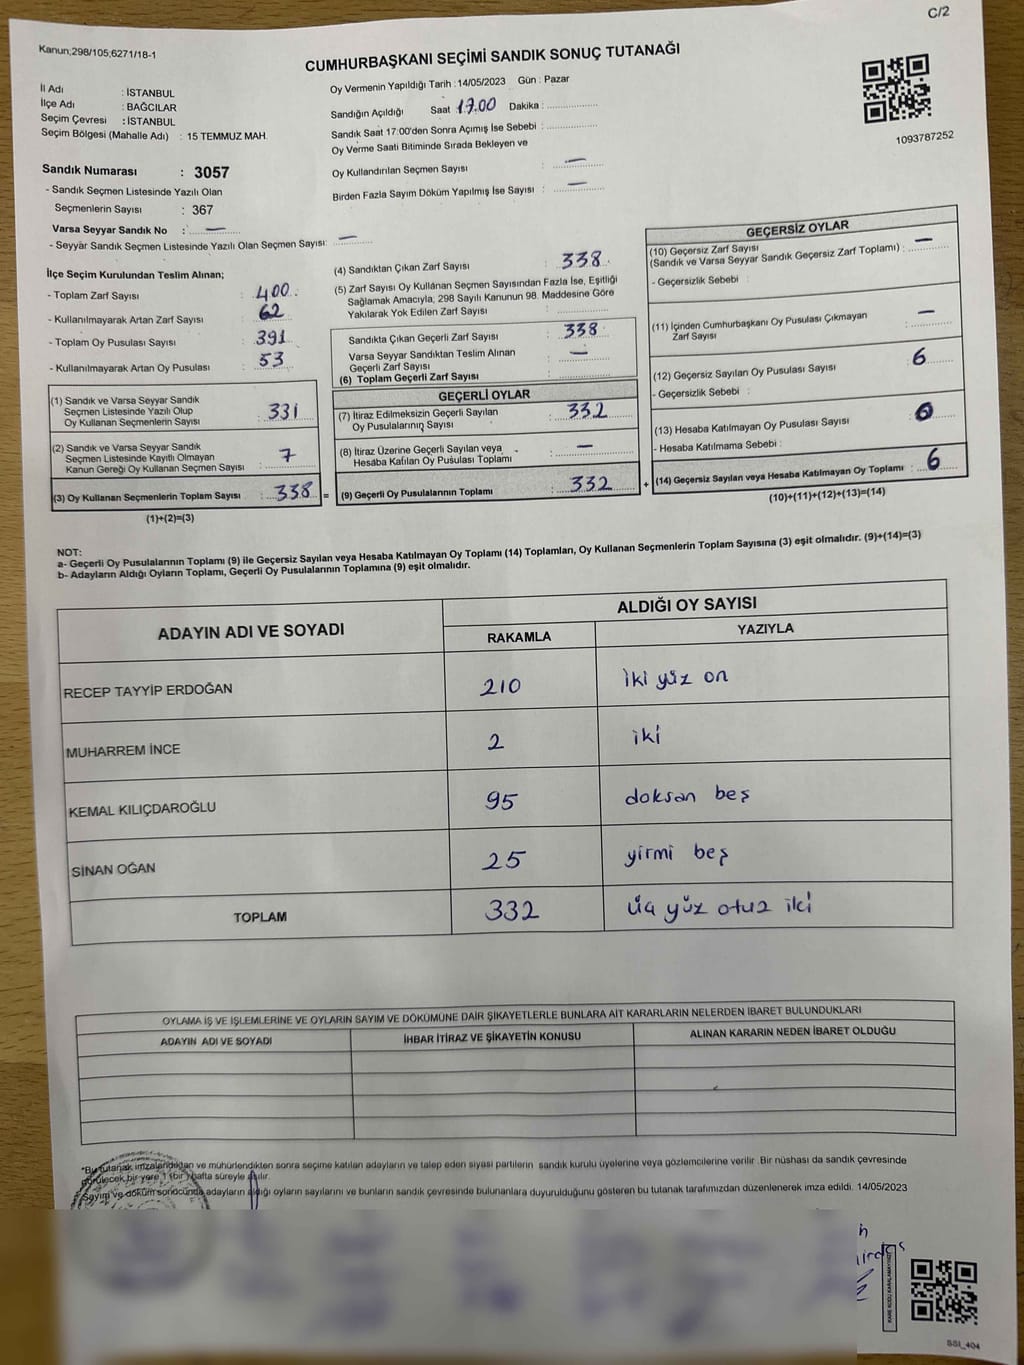 C/2
Kanun;298/105;6271/18-1
CUMHURBAŞKANI SEÇİMİ SANDIK SONUÇ TUTANAĞI
İl Adı : İSTANBUL
İlçe Adı : BAĞCILAR
Seçim Çevresi : İSTANBUL
Seçim Bölgesi (Mahalle Adı) : 15 TEMMUZ MAH.
Oy Vermenin Yapıldığı Tarih : 14/05/2023 Gün : Pazar
Sandığın Açıldığı Saat 17.00 Dakika :
Sandık Saat 17:00'den Sonra Açımış İse Sebebi :
Oy Verme Saati Bitiminde Sırada Bekleyen ve
Oy Kullandırılan Seçmen Sayısı : —
Birden Fazla Sayım Döküm Yapılmış İse Sayısı : —
1093787252
Sandık Numarası : 3057
- Sandık Seçmen Listesinde Yazılı Olan
Seçmenlerin Sayısı : 367
Varsa Seyyar Sandık No : —
- Seyyar Sandık Seçmen Listesinde Yazılı Olan Seçmen Sayısı: —
İlçe Seçim Kurulundan Teslim Alınan;
- Toplam Zarf Sayısı : 400
- Kullanılmayarak Artan Zarf Sayısı : 62
- Toplam Oy Pusulası Sayısı : 391
- Kullanılmayarak Artan Oy Pusulası : 53
(1) Sandık ve Varsa Seyyar Sandık
Seçmen Listesinde Yazılı Olup
Oy Kullanan Seçmenlerin Sayısı : 331
(2) Sandık ve Varsa Seyyar Sandık
Seçmen Listesinde Kayıtlı Olmayan
Kanun Gereği Oy Kullanan Seçmen Sayısı : 7
(3) Oy Kullanan Seçmenlerin Toplam Sayısı : 338 =
(1)+(2)=(3)
(4) Sandıktan Çıkan Zarf Sayısı : 338
(5) Zarf Sayısı Oy Kullanan Seçmen Sayısından Fazla İse, Eşitliği
Sağlamak Amacıyla, 298 Sayılı Kanunun 98. Maddesine Göre
Yakılarak Yok Edilen Zarf Sayısı :
Sandıkta Çıkan Geçerli Zarf Sayısı : 338
Varsa Seyyar Sandıktan Teslim Alınan
Geçerli Zarf Sayısı : —
(6) Toplam Geçerli Zarf Sayısı :
GEÇERLİ OYLAR
(7) İtiraz Edilmeksizin Geçerli Sayılan
Oy Pusulalarının Sayısı : 332
(8) İtiraz Üzerine Geçerli Sayılan veya
Hesaba Katılan Oy Pusulası Toplamı : —
(9) Geçerli Oy Pusulalarının Toplamı : 332 +
GEÇERSİZ OYLAR
(10) Geçersiz Zarf Sayısı
(Sandık ve Varsa Seyyar Sandık Geçersiz Zarf Toplamı) : —
- Geçersizlik Sebebi :
(11) İçinden Cumhurbaşkanı Oy Pusulası Çıkmayan
Zarf Sayısı : —
(12) Geçersiz Sayılan Oy Pusulası Sayısı : 6
- Geçersizlik Sebebi :
(13) Hesaba Katılmayan Oy Pusulası Sayısı :
- Hesaba Katılmama Sebebi :
(14) Geçersiz Sayılan veya Hesaba Katılmayan Oy Toplamı : 6
(10)+(11)+(12)+(13)=(14)
NOT:
a- Geçerli Oy Pusulalarının Toplamı (9) ile Geçersiz Sayılan veya Hesaba Katılmayan Oy Toplamı (14) Toplamları, Oy Kullanan Seçmenlerin Toplam Sayısına (3) eşit olmalıdır. (9)+(14)=(3)
b- Adayların Aldığı Oyların Toplamı, Geçerli Oy Pusulalarının Toplamına (9) eşit olmalıdır.
ADAYIN ADI VE SOYADI
ALDIĞI OY SAYISI
RAKAMLA YAZIYLA
RECEP TAYYİP ERDOĞAN 210 iki yüz on
MUHARREM İNCE 2 iki
KEMAL KILIÇDAROĞLU 95 doksan beş
SİNAN OĞAN 25 yirmi beş
TOPLAM 332 üç yüz otuz iki
OYLAMA İŞ VE İŞLEMLERİNE VE OYLARIN SAYIM VE DÖKÜMÜNE DAİR ŞİKAYETLERLE BUNLARA AİT KARARLARIN NELERDEN İBARET BULUNDUKLARI
ADAYIN ADI VE SOYADI İHBAR İTİRAZ VE ŞİKAYETİN KONUSU ALINAN KARARIN NEDEN İBARET OLDUĞU
*Bu tutanak imzalandıktan ve mühürlendikten sonra seçime katılan adayların ve talep eden siyasi partilerin sandık kurulu üyelerine veya gözlemcilerine verilir. Bir nüshası da sandık çevresinde
görülecek bir yere 1 (bir) hafta süreyle asılır.
Sayım ve döküm sonucunda adayların aldığı oyların sayılarını ve bunların sandık çevresinde bulunanlara duyurulduğunu gösteren bu tutanak tarafımızdan düzenlenerek imza edildi. 14/05/2023
KARE KODU KARALAMAYINIZ
SSI_404